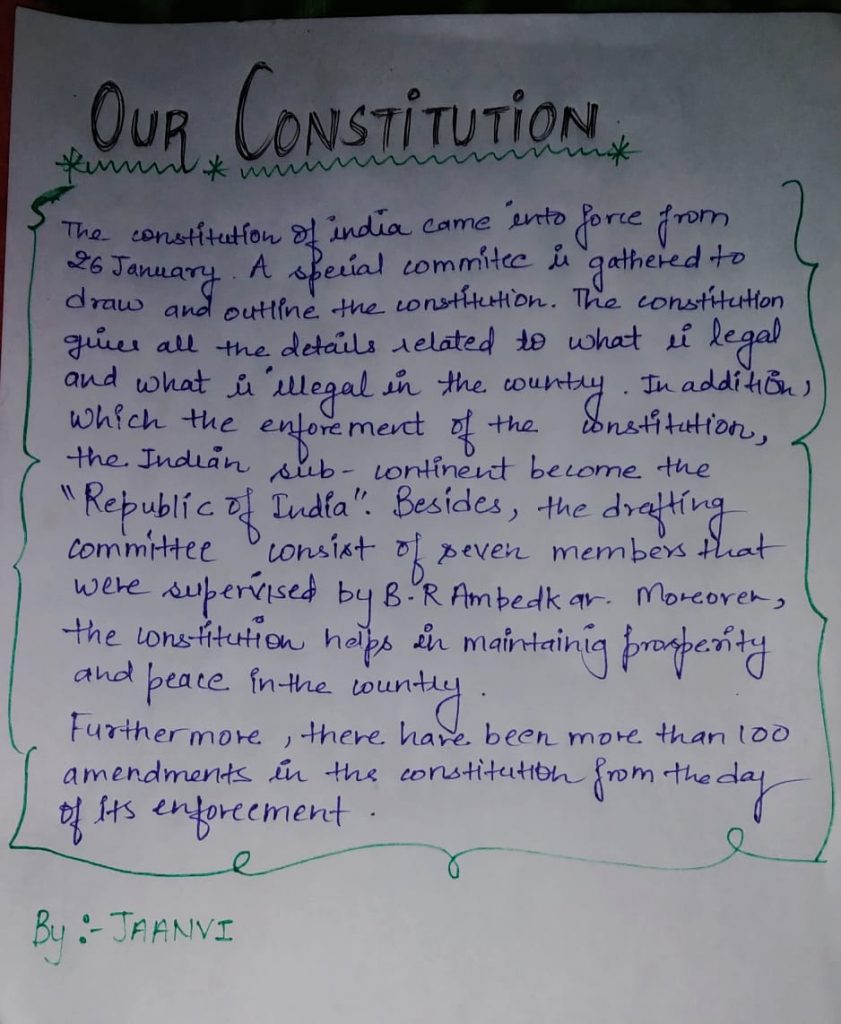 OUR CONSTITUTION
The constitution of india came into force from
26 January. A special commitee is gathered to
draw and outline the constitution. The constitution
gives all the details related to what is legal
and what is illegal in the country. In addition,
which the enforement of the constitution,
the Indian sub-continent become the
"Republic of India". Besides, the drafting
committee consist of seven members that
were supervised by B.R Ambedkar. Moreover,
the constitution helps in maintainig prosperity
and peace in the country.
Furthermore, there have been more than 100
amendments in the constitution from the day
of its enforcement.
By :- JAANVI